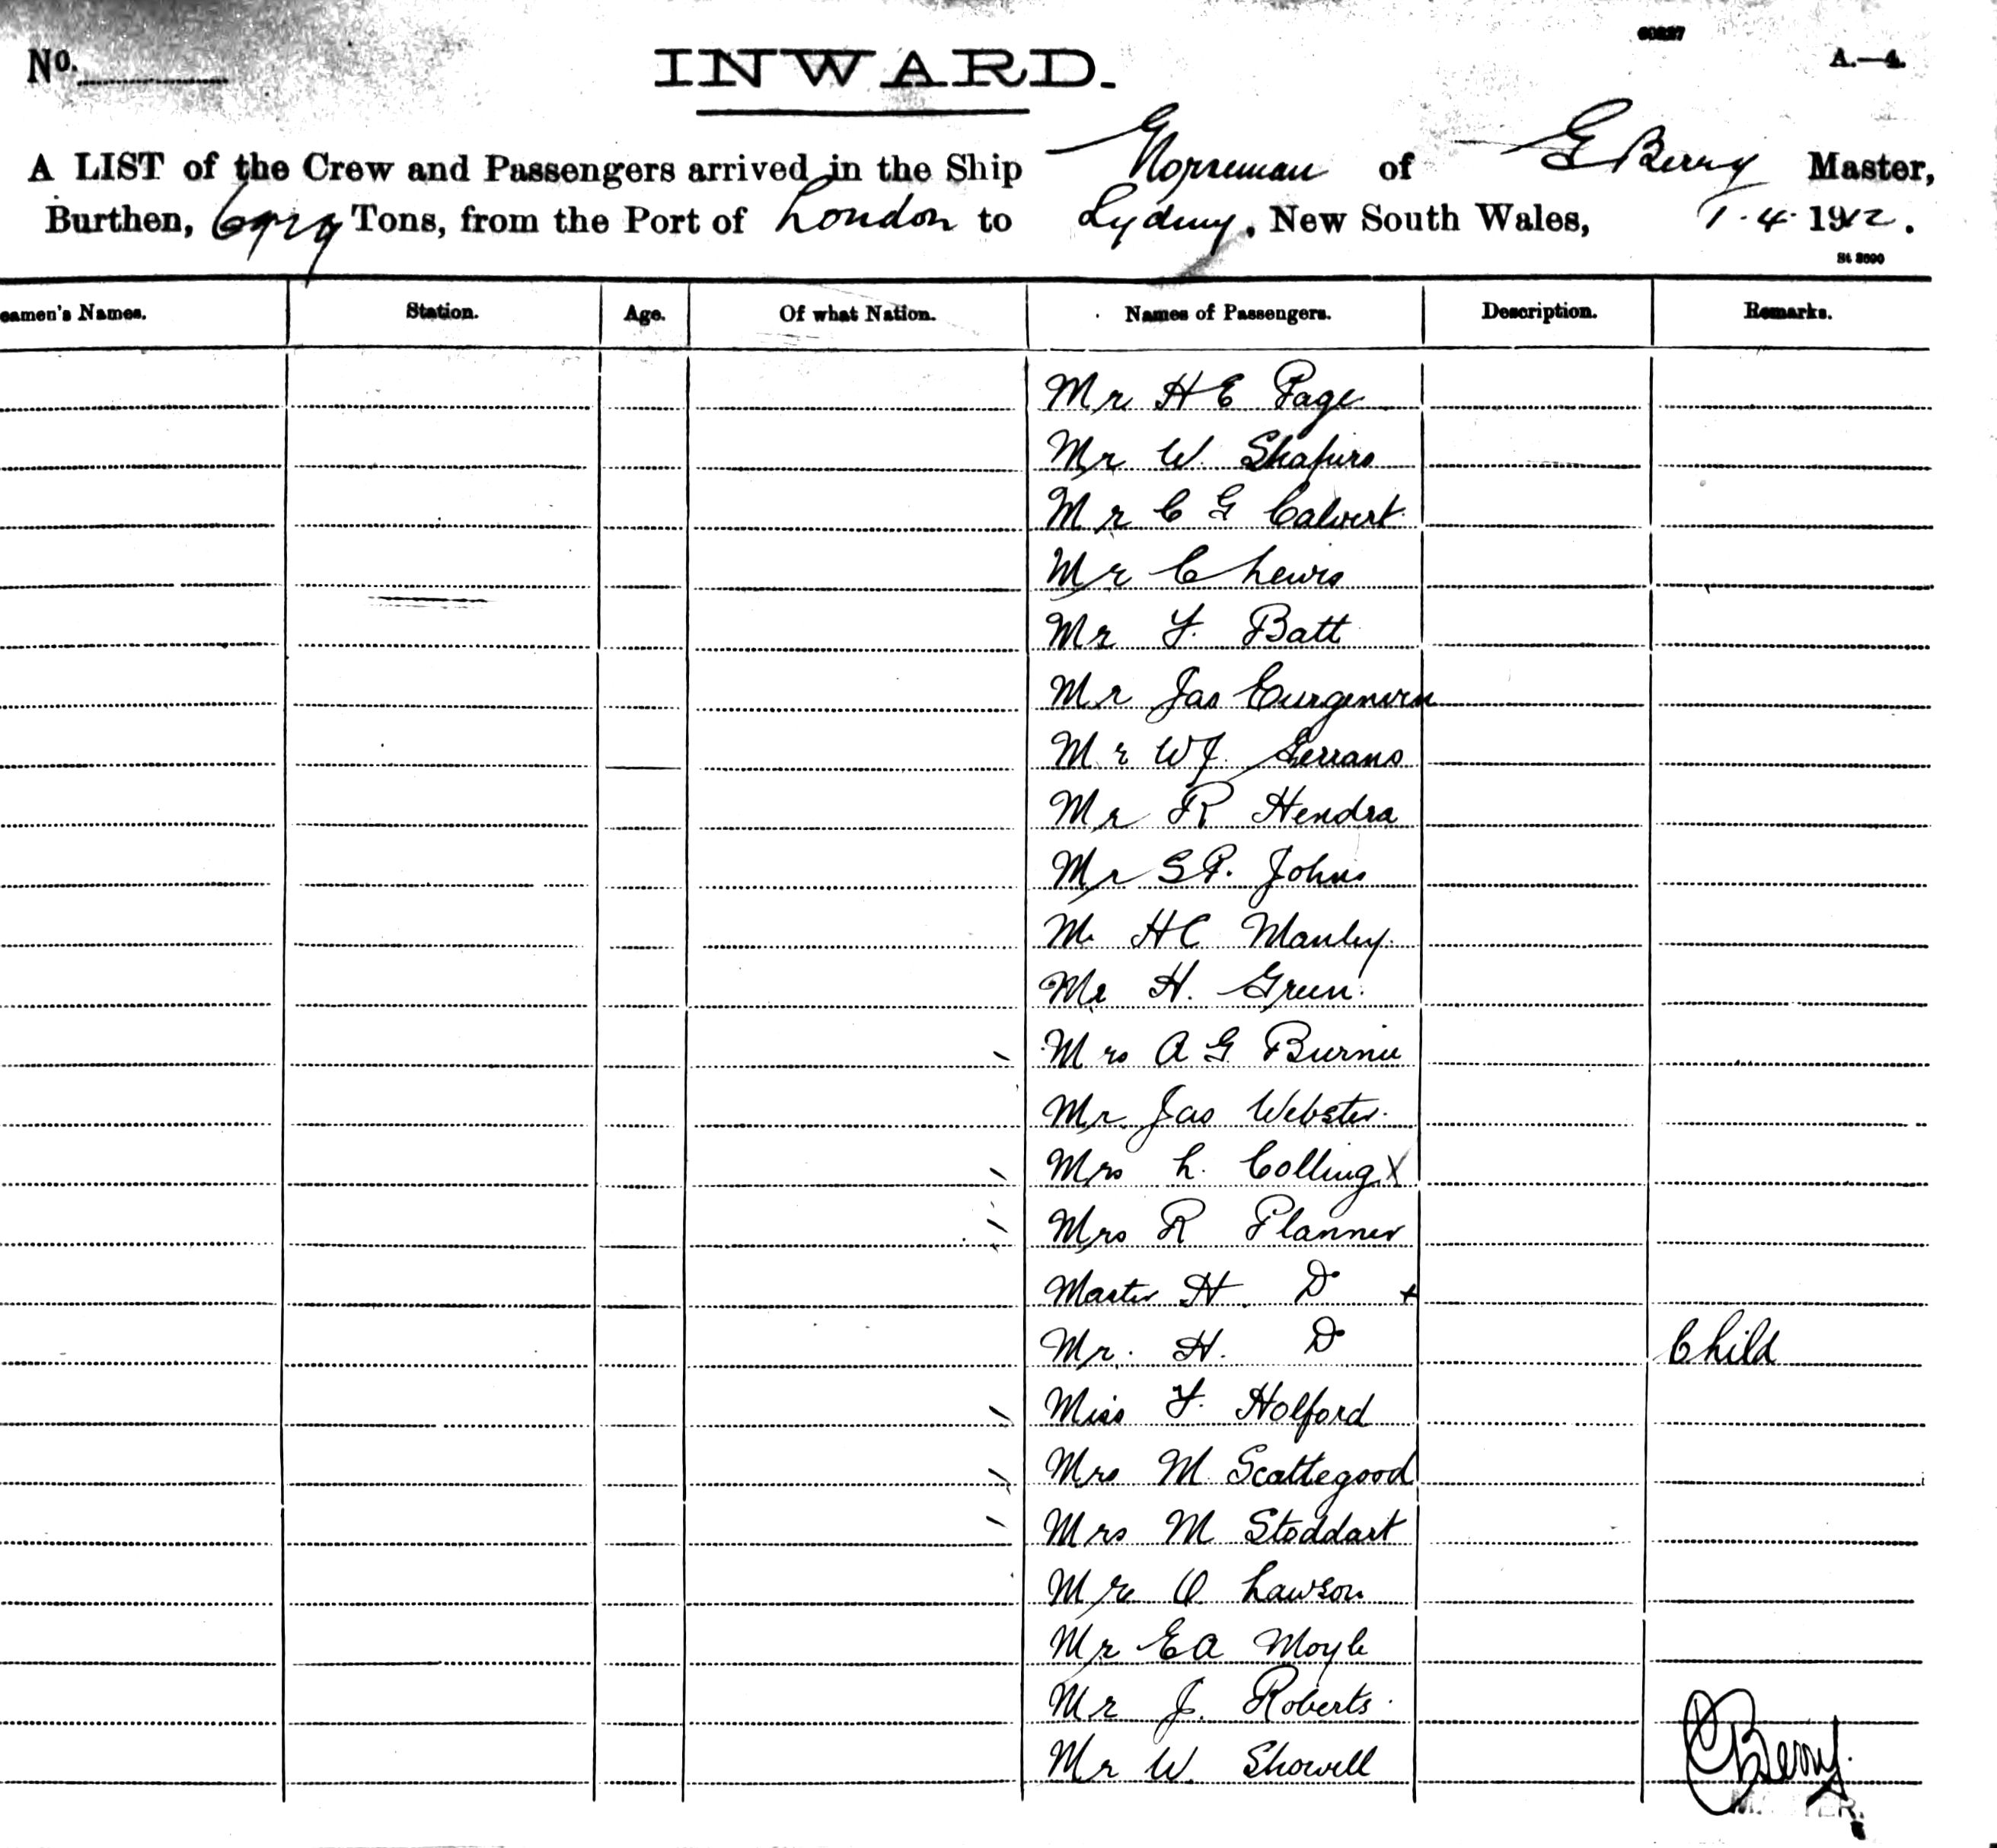 No.
INWARD.
60227
A.—4.
A LIST of the Crew and Passengers arrived in the Ship Norseman of G Berry Master,
Burthen, Tons, from the Port of London to Sydney, New South Wales, 1.4.1912.
St 3600
eamen's Names. Station. Age. Of what Nation. Names of Passengers. Description. Remarks.
Mr H E Page
Mr W. Shapiro
Mr C G Calvert
Mr C Lewis
Mr F. Batt
Mr Jas Curgenven
Mr WJ. Serrano
Mr R Hendra
Mr S P. Johns
Mr HC Manley.
Mr H. Green.
Mrs A G Burnie
Mr. Jas Webster.
Mrs L. Colling X
Mrs R Planner
Master H. Do +
Mr. H. Do Child
Miss F. Holford
Mrs M. Scattegood
Mrs M Stoddart
Mr O Lawson
Mr EA Moyle
Mr J. Roberts.
Mr W. Showell
Berry.
MASTER.